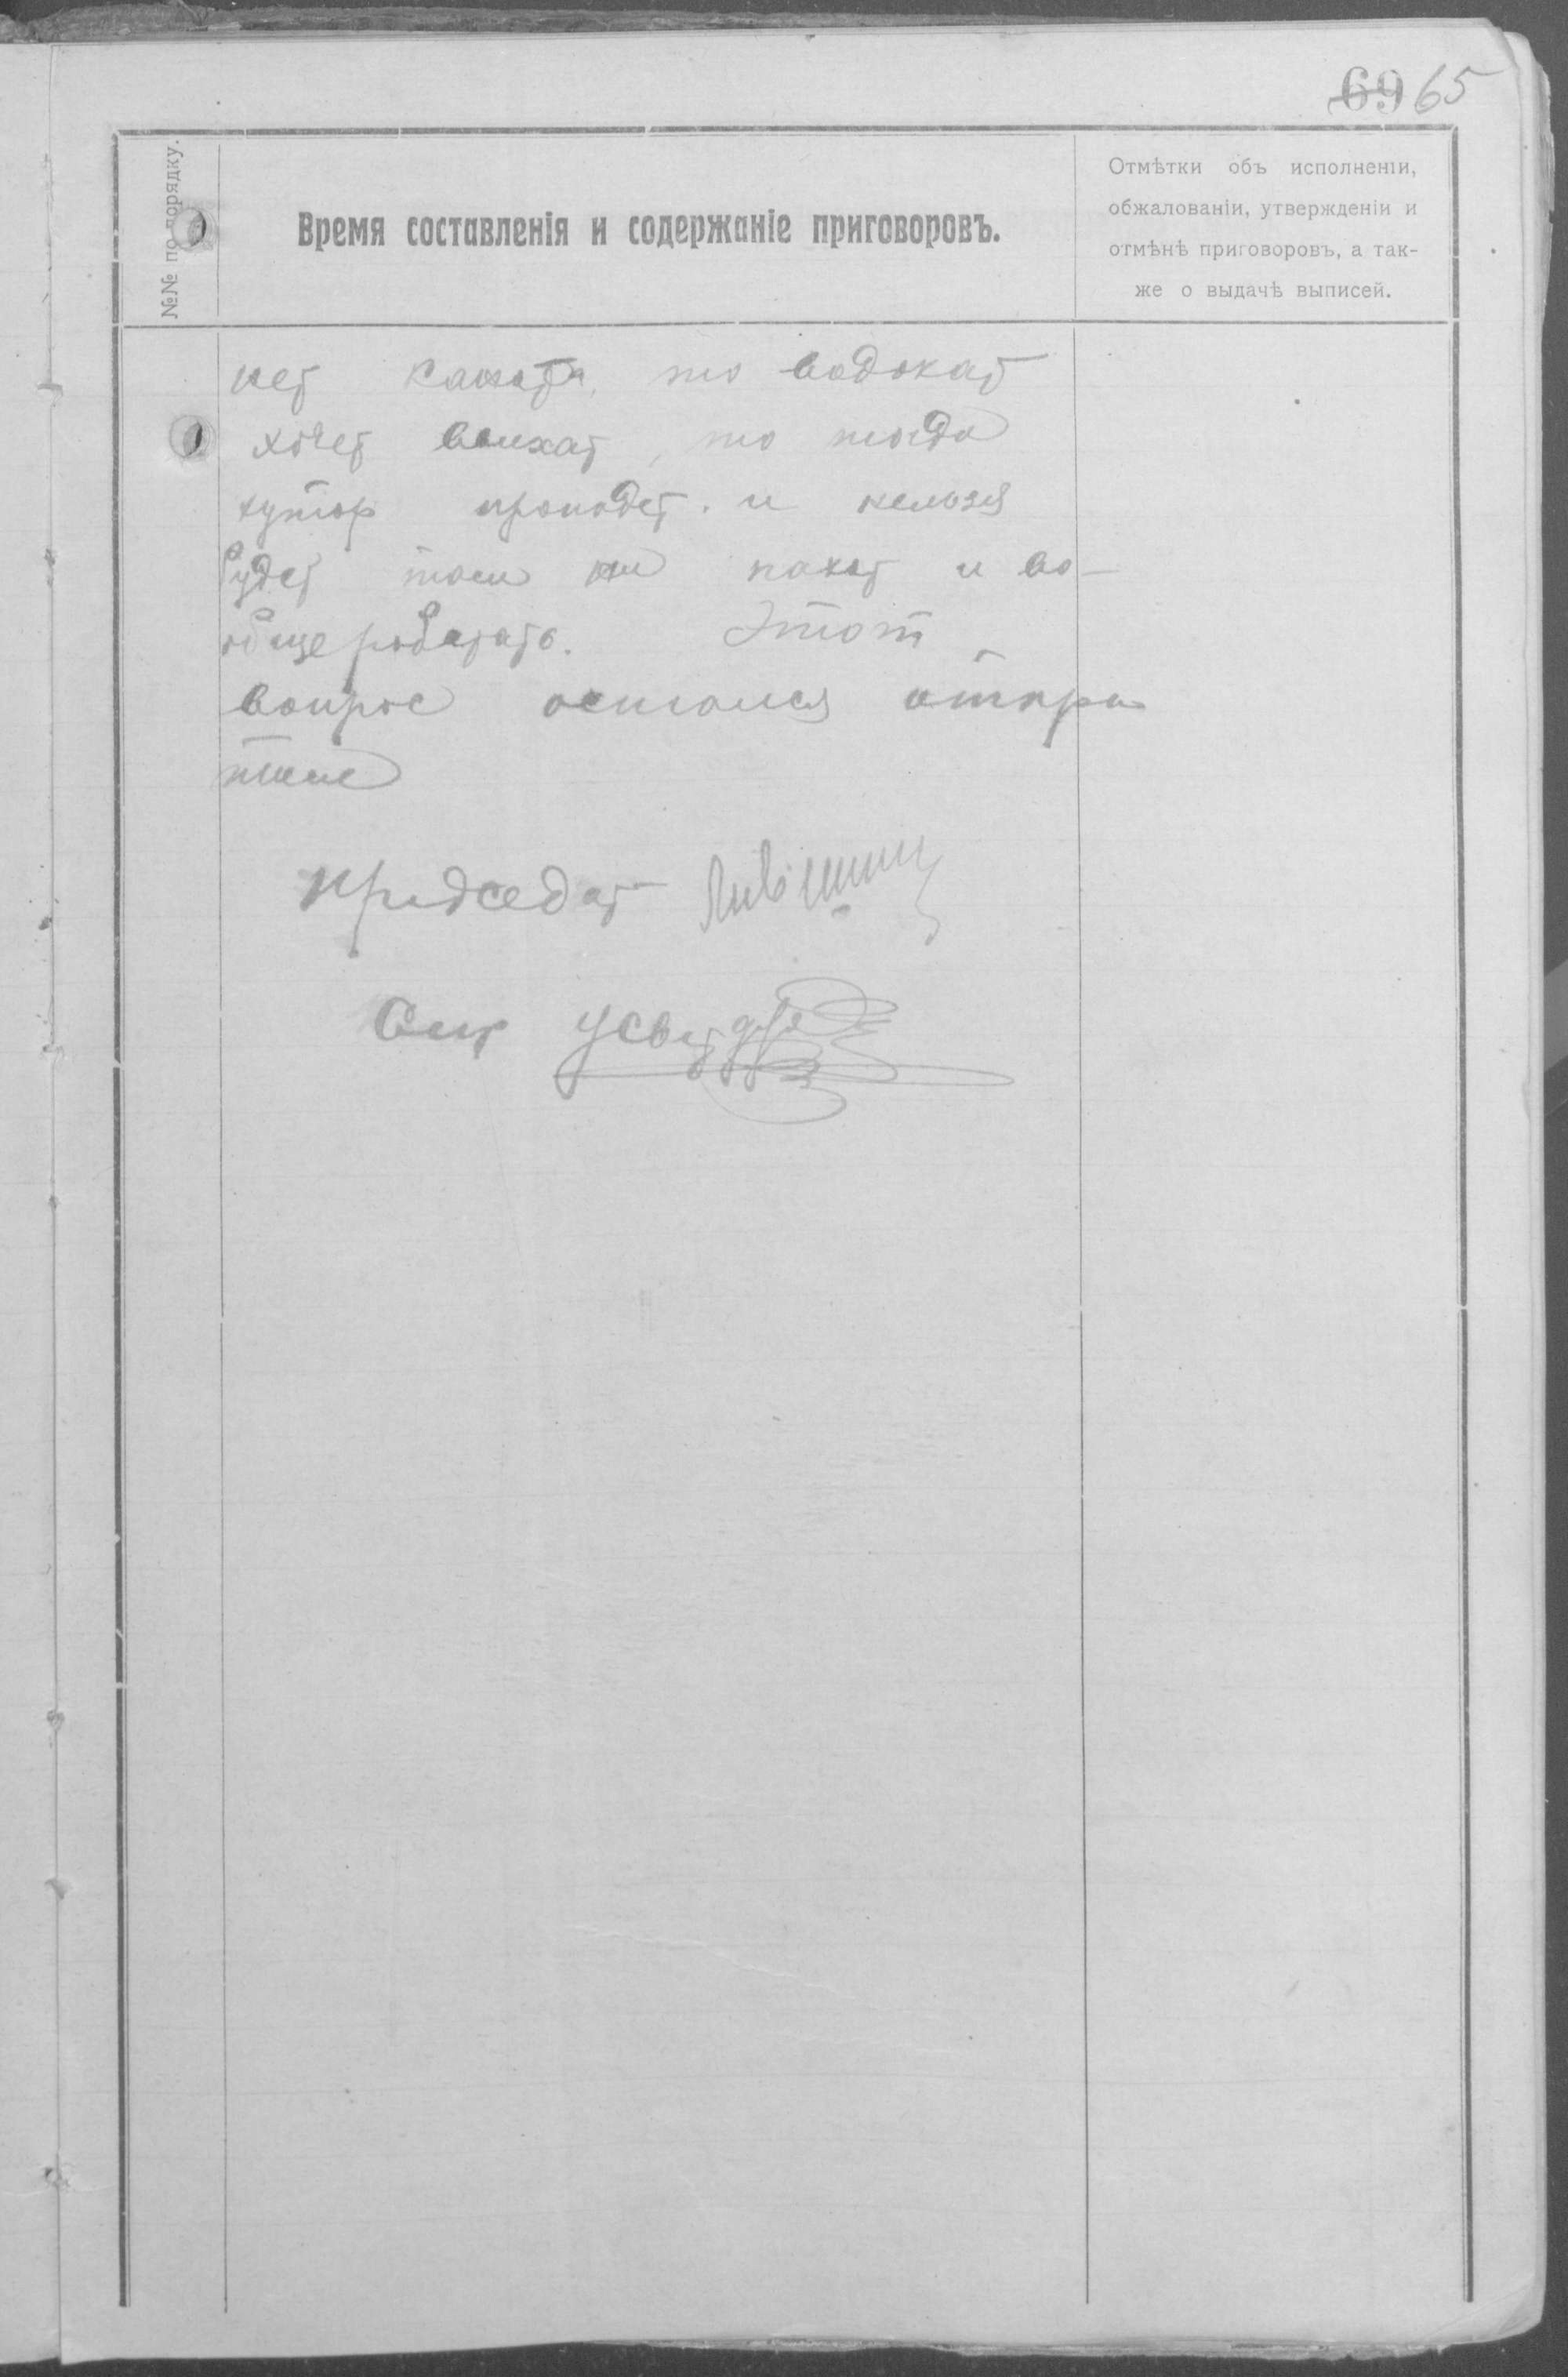 69 65
№№ по порядку.
Время составленія и содержаніе приговоровъ.
Отмѣтки объ исполненіи,
обжалованіи, утвержденіи и
отмѣнѣ приговоровъ, а так-
же о выдачѣ выписей.
нет то водокат
хочет то тогда
хутор пропадет. и нельзя
будет там ни пахат и во-
обще работать. Этот
вопрос остался откри
тим
Придседат
Сек